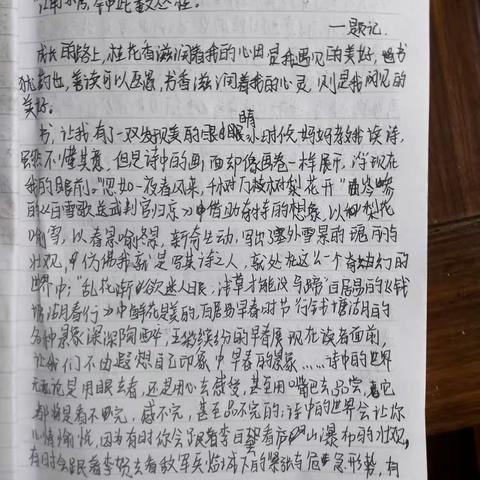 江南水岸，笔中此数丛桂。
一题记.
成长的路上,桂花香滋润着我的心田是我遇见的美好,书
犹药也,善读可以医愚,书香滋润着我的心灵,则是我阅见的
美好。
睛
书,让我有了一双发现美的眼小时侯,妈妈教我读诗,
虽然不懂其意,但是诗中的画面却像画卷一样展示,浮现在
我的眼前。"忽如一夜春风来,千树万树梨花开"岑
的《白雪歌送武判官归京》中借助奇特的想象,以梨花
喻雪,以春景喻冬景,新奇生动,写出塞外雪景的瑰丽与
壮观,仿佛我就是写其诗之人,就处在这么一个奇幻的
世界中;"乱花渐欲迷人眼,浅草才能没马蹄"白居易的《钱
塘湖春行》中鲜花是美的,白居易早春时节行
各种景象深深陶醉,五彩缤纷的早春展现在读者面前,
让我们不由遐想自己印象中早春的景象……诗中的世界
无论是用眼去看,还是用心去感受,甚至用嘴巴去品尝,它
都是看不完,感不完,甚至品不完的;诗中的世界会让你
心情愉悦,因为有时你会跟着李白望着庐山瀑布的壮观,
有时会跟着李贺去看敌军兵临城下的紧张与危急形势,有